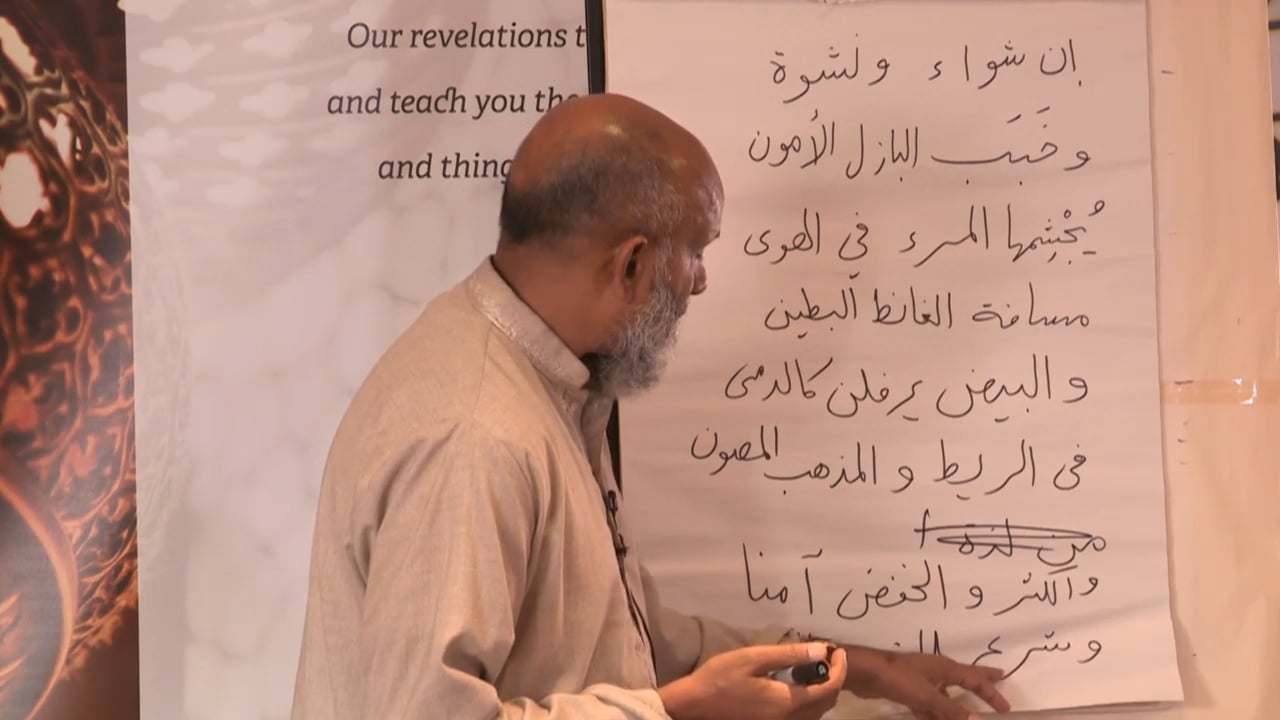 Our revelations t
and teach you the
and thing
إن شواء ونشوة
وخَبَب البازل الأمون
يُجْشِمها المرء في الهوى
مسافة الغائط البطين
والبيض يرفلن كالدمى
في الريط والمذهب المصون
من لذة
والكثر والخفض آمنا
وشرع